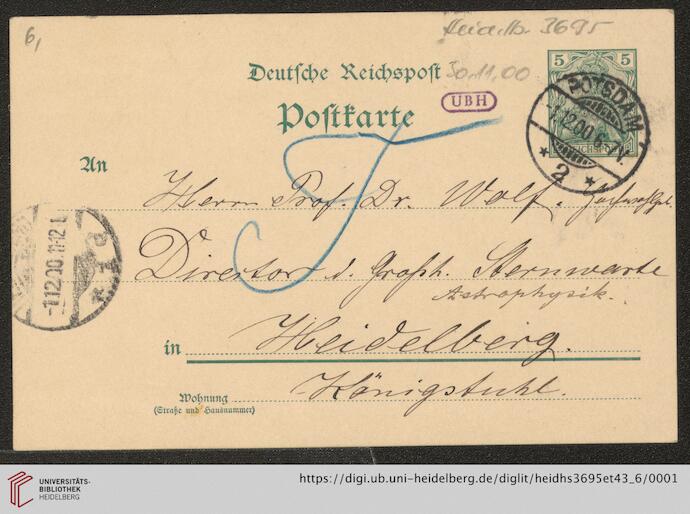 6,
Heidelb. 3695
5 5
Deutsche Reichspost
30.11.00
Postkarte
UBH
POTSDAM
1.12.00
* 2 *
An
Herrn Prof. Dr. Wolf.
-1.12.00.11-12
Director d. Großh. Sternwarte
Astrophysik.
in Heidelberg.
Königstuhl.
Wohnung
(Straße und Hausnummer)
UNIVERSITÄTS-
BIBLIOTHEK
HEIDELBERG
https://digi.ub.uni-heidelberg.de/diglit/heidhs3695et43_6/0001